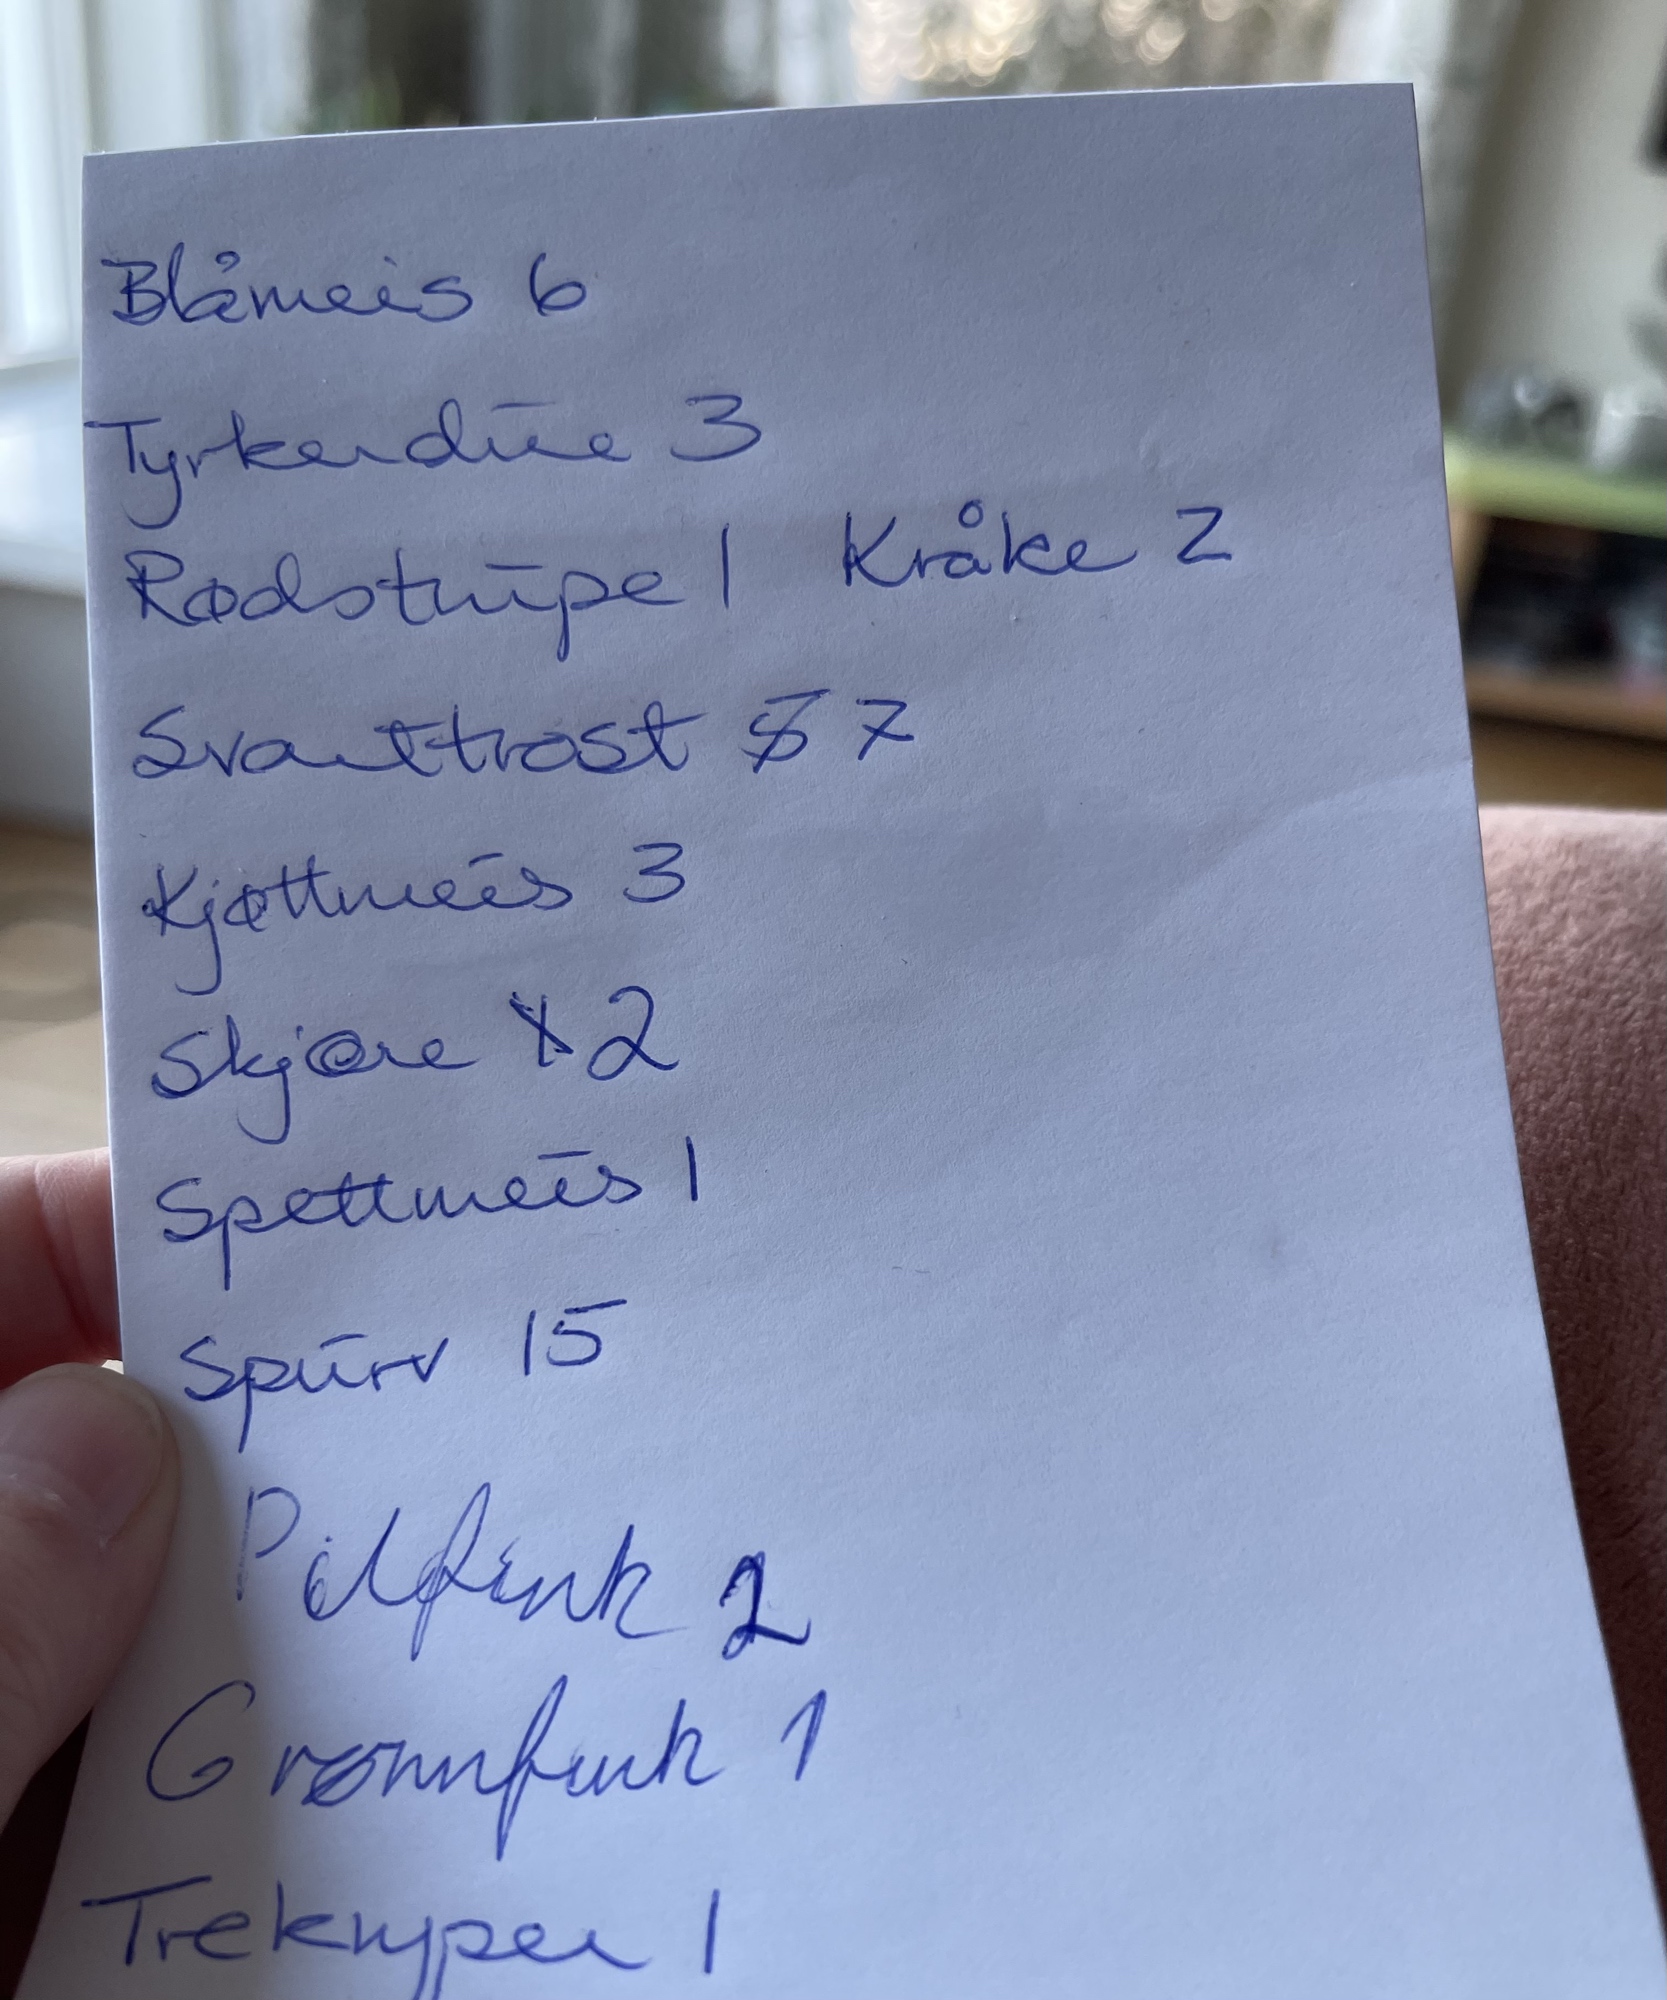 Blåmeis 6
Tyrkerdue 3
Rødstrupe 1 Kråke 2
Svarttrost 7
Kjøttmeis 3
Skjære 2
Spettmeis 1
Spurv 15
Pilfink 2
Grønnfink 1
Trekryper 1